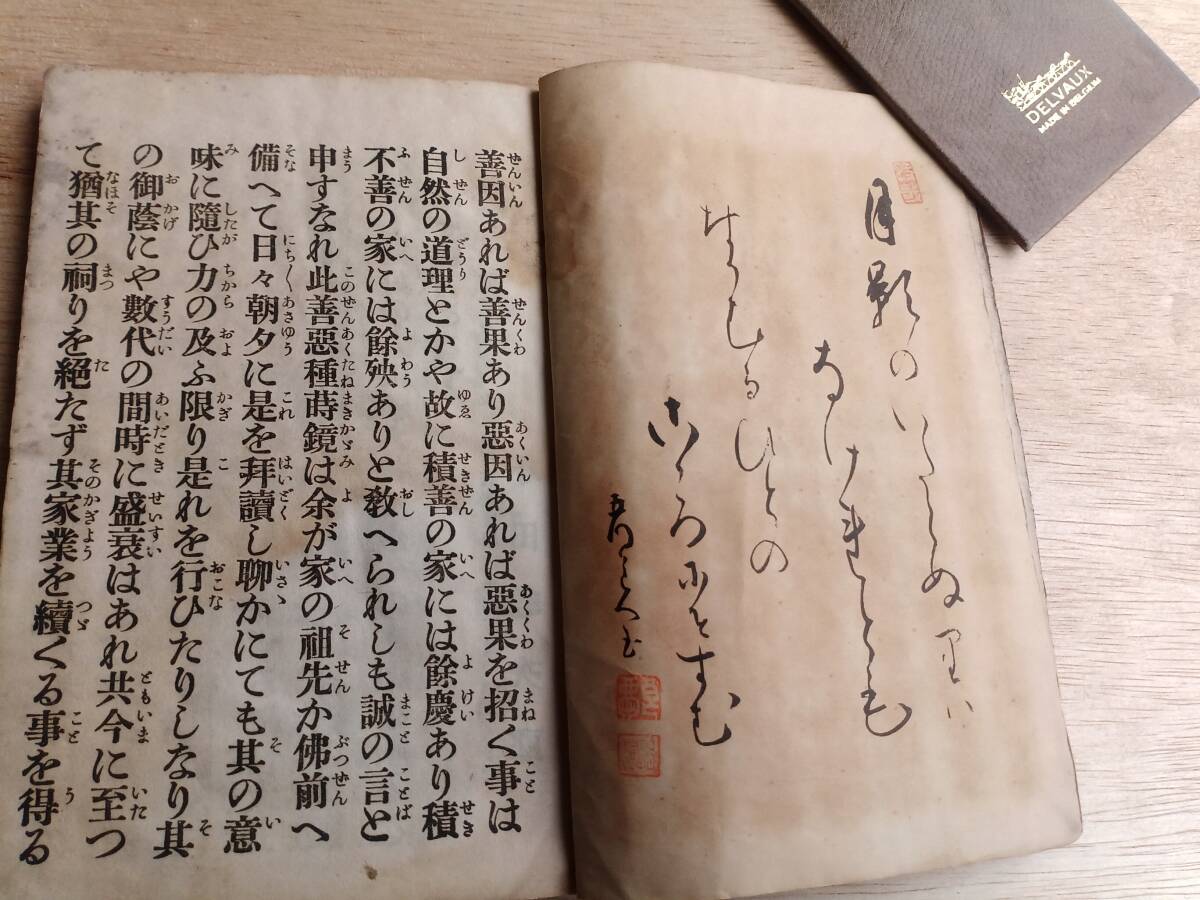 DELVAUX
MADE IN BELGIUM
月影のいたらぬ里ハ
なけれとも
なかむるひとの
こゝろにそすむ
善因あれば善果あり惡因あれば惡果を招く事は
自然の道理とかや故に積善の家には餘慶あり積
不善の家には餘殃ありと敎へられしも誠の言と
申すなれ此善惡種蒔鏡は余が家の祖先か佛前へ
備へて日々朝夕に是を拜讀し聊かにても其の意
味に隨ひ力の及ふ限り是れを行ひたりしなり其
の御蔭にや數代の間時に盛衰はあれ共今に至つ
て猶其の祠りを絶たず其家業を續くる事を得る